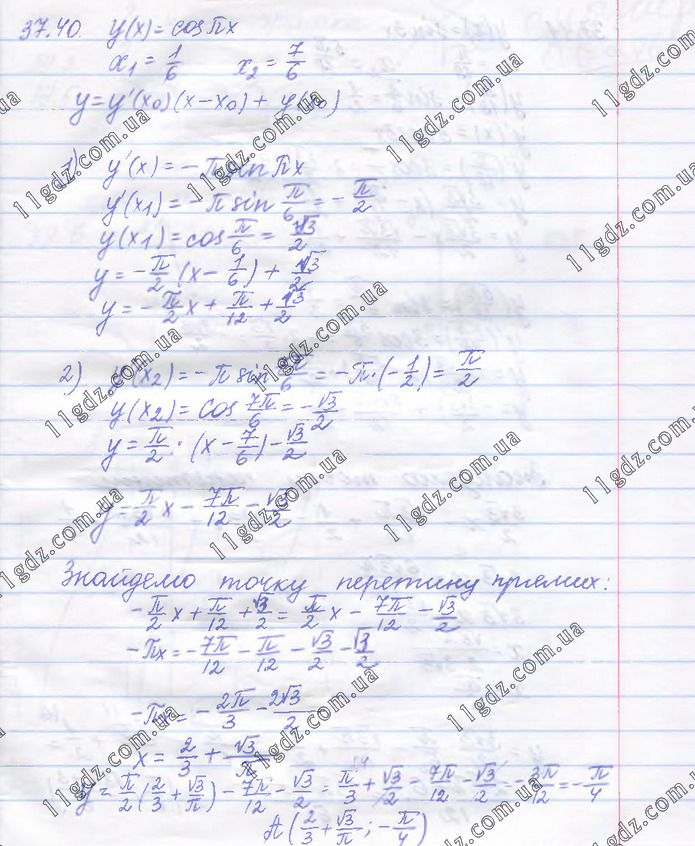 37.40. y(x) = cos πx
x₁ = 1/6 x₂ = 7/6
y = y'(x₀)(x − x₀) + y(x₀)
1) y'(x) = −π sin πx
y'(x₁) = −π sin π/6 = −π/2
y(x₁) = cos π/6 = √3/2
y = −π/2 (x − 1/6) + √3/2
y = −π/2 x + π/12 + √3/2
2) y'(x₂) = −π sin 7π/6 = −π·(−1/2) = π/2
y(x₂) = cos 7π/6 = −√3/2
y = π/2 · (x − 7/6) − √3/2
y = π/2 x − 7π/12 − √3/2
Знайдемо точку перетину прямих:
−π/2 x + π/12 + √3/2 = π/2 x − 7π/12 − √3/2
−πx = −7π/12 − π/12 − √3/2 − √3/2
−πx = −2π/3 − 2√3/2
x = 2/3 + √3/π
y = π/2 (2/3 + √3/π) − 7π/12 − √3/2 = π/3 + √3/2 − 7π/12 − √3/2 = −3π/12 = −π/4
A (2/3 + √3/π; −π/4)
11gdz.com.ua